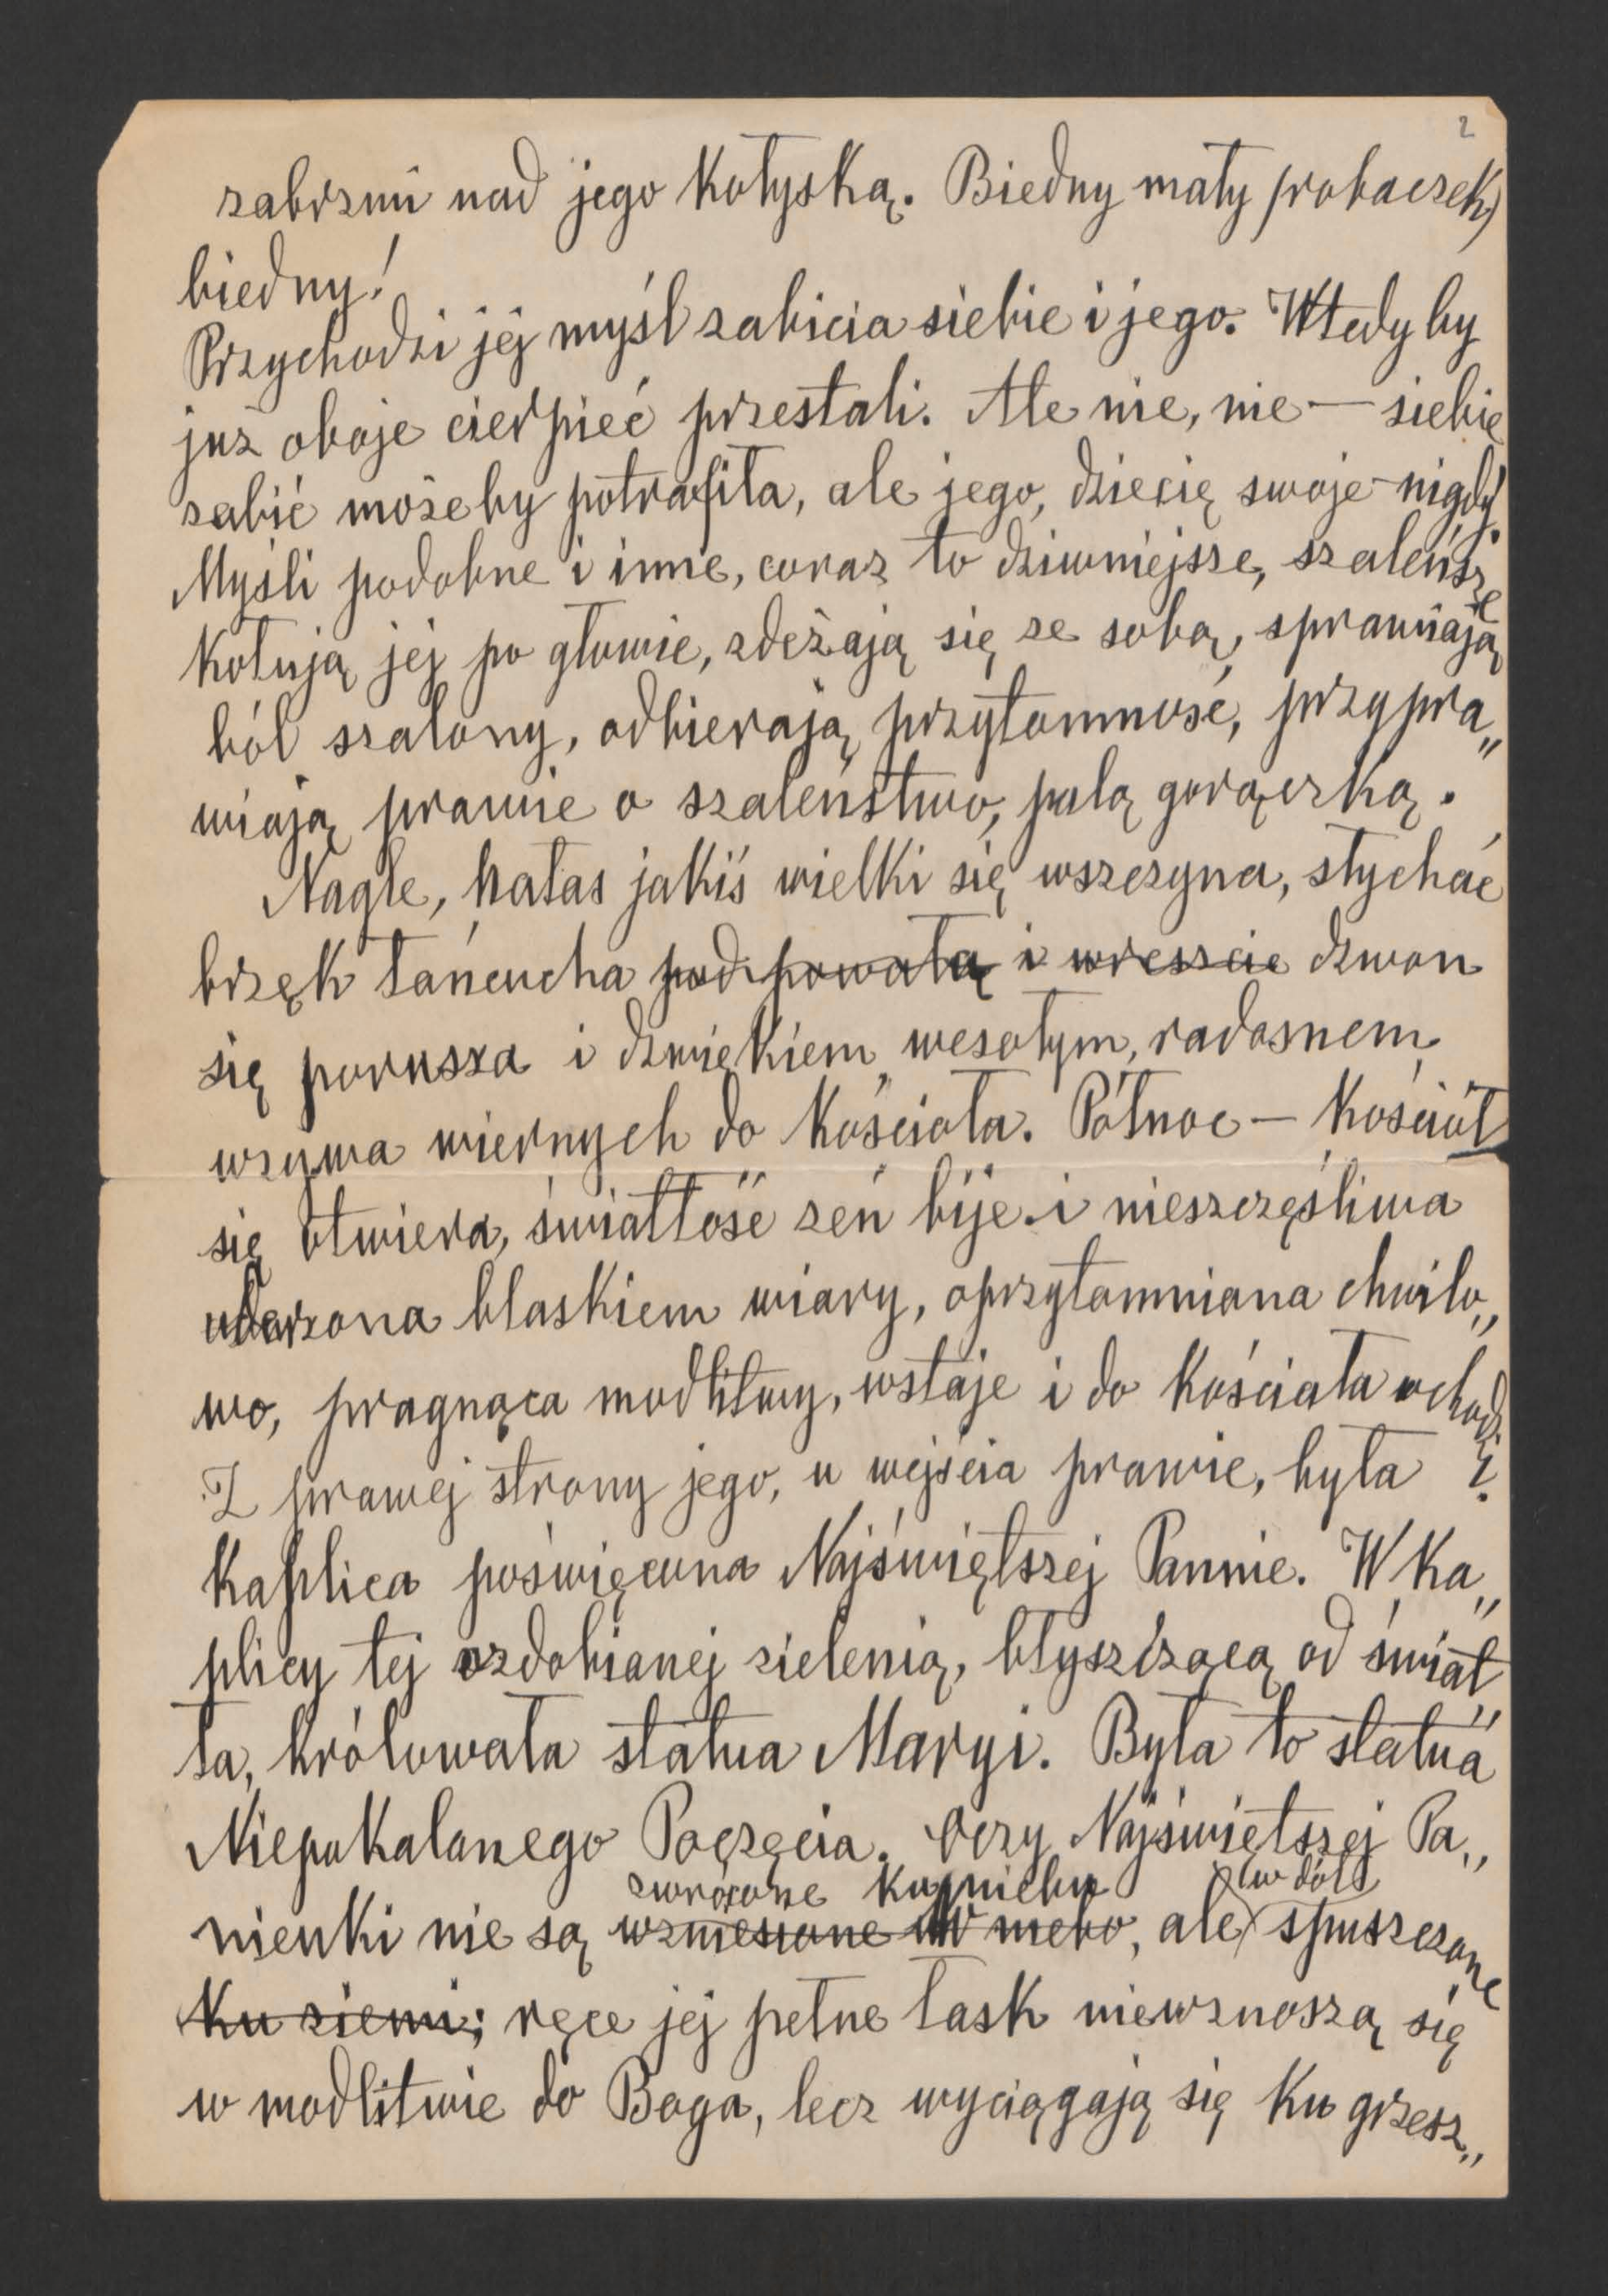 2
zabrzmi nad jego kołyską. Biedny mały robaczek,
biedny!
Przychodzi jej myśl zabicia siebie i jego. Wtedy by
już oboje cierpieć przestali. Ale nie, nie — siebie
zabić może by potrafiła, ale jego, dziecię swoje – nigdy!
Myśli podobne i inne, coraz to dziwniejsze, szaleńsze
kotują jej po głowie, zdeżają się ze sobą, sprawiają
ból szalony, odbierają przytomność, przypra„
wiają prawie o szaleństwo, palą gorączką.
Nagle, hałas jakiś wielki się wszczyna, słychać
brzęk łańcucha pod powałą i wreszcie dzwon
się porusza i dzwiękiem wesołym, radosnem
wzywa wiernych do kościoła. Północ — kościół
się otwiera, światłość zeń bije i nieszczęśliwa
uderzona blaskiem wiary, oprzytomniana chwilo„
wo, pragnąca modlitwy, wstaje i do kościoła wchodzi.
Z prawej strony jego, u wejścia prawie, była
kaplica poświęcona Najświętszej Pannie. W ka„
plicy tej ozdobianej zielenią, błyszczącą od świat„
ła, królowała statua Maryi. Była to statua
Niepokalanego Poczęcia. Oczy Najświętszej Pa„
zwrócone ku niebu (w dół)
nienki nie są wzniesione w niebo, ale spuszczone
ku ziemi; ręce jej pełne łask niewznoszą się
w modlitwie do Boga, lecz wyciągają się ku grzesz„